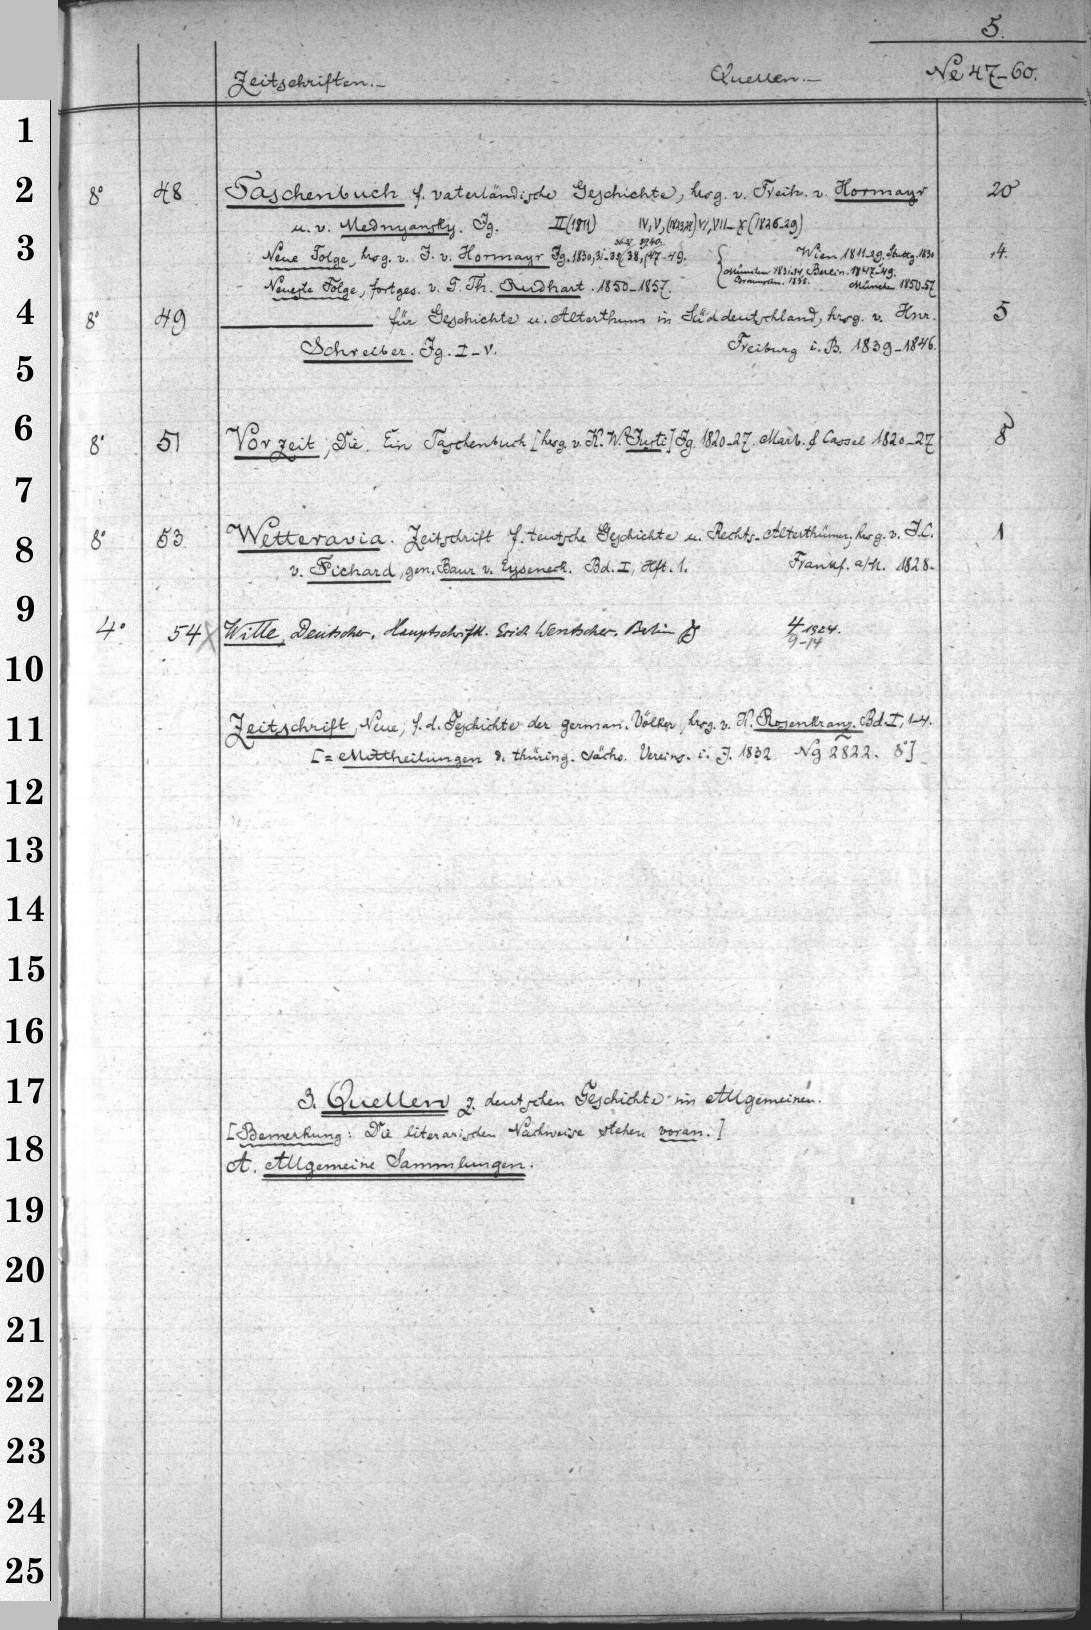 5.
Zeitschriften.— Quellen.— Ne 47–60.
1
2 8° 48 Taschenbuch f. vaterländische Geschichte, hrsg. v. Freih. v. Hormayr 20
u. v. Mednyansky. Jg. II (1811) IV, V, (1823,24) VI, VII–X (1826–29)
3 Neue Folge, hrsg. v. J. v. Hormayr Jg. 1830, 31–32, 38, 47–49. Wien 1811–29. Stuttg. 1830 +4.
München 1831–34, Berlin. 1847–49.
Neueste Folge, fortges. v. G. Th. Rudhart. 1850–1857. Braunschw. 1838. München 1850–57
4 8° 49 ——— für Geschichte u. Alterthum in Süddeutschland, hrsg. v. Hnr. 5
Schreiber. Jg. I–V. Freiburg i. B. 1839–1846.
5
6 8° 51 Vorzeit, Die. Ein Taschenbuch [hrsg. v. K. W. Justi] Jg. 1820–27. Marb. & Cassel 1820–27 8
7
8 8° 53 Wetteravia. Zeitschrift f. teutsche Geschichte u. Rechts-Alterthümer, hrsg. v. J. C. 1
v. Fichard, gen. Baur v. Eyseneck. Bd. I, Hft. 1. Frankf. a/M. 1828.
9 4° 54 Wille, Deutscher, Hauptschriftl. Erich Wentscher. Berlin 4 1924.
9–14
10
11 Zeitschrift, Neue, f. d. Geschichte der german. Völker, hrsg. v. K. Rosenkranz. Bd. I, 1–4.
[= Mittheilungen d. thüring. sächs. Vereins. i. J. 1832 Ng 2822. 8°]
12
13
14
15
16
17 3. Quellen z. deutschen Geschichte im Allgemeinen.
18 [Bemerkung: Die literarischen Nachweise stehen voran.]
A. Allgemeine Sammlungen.
19
20
21
22
23
24
25